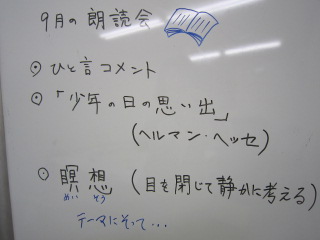 9月の朗読会
◎ひと言コメント
◎「少年の日の思い出」
(ヘルマン・ヘッセ)
◎瞑想(目を閉じて静かに考える)
めい そう
テーマにそって…